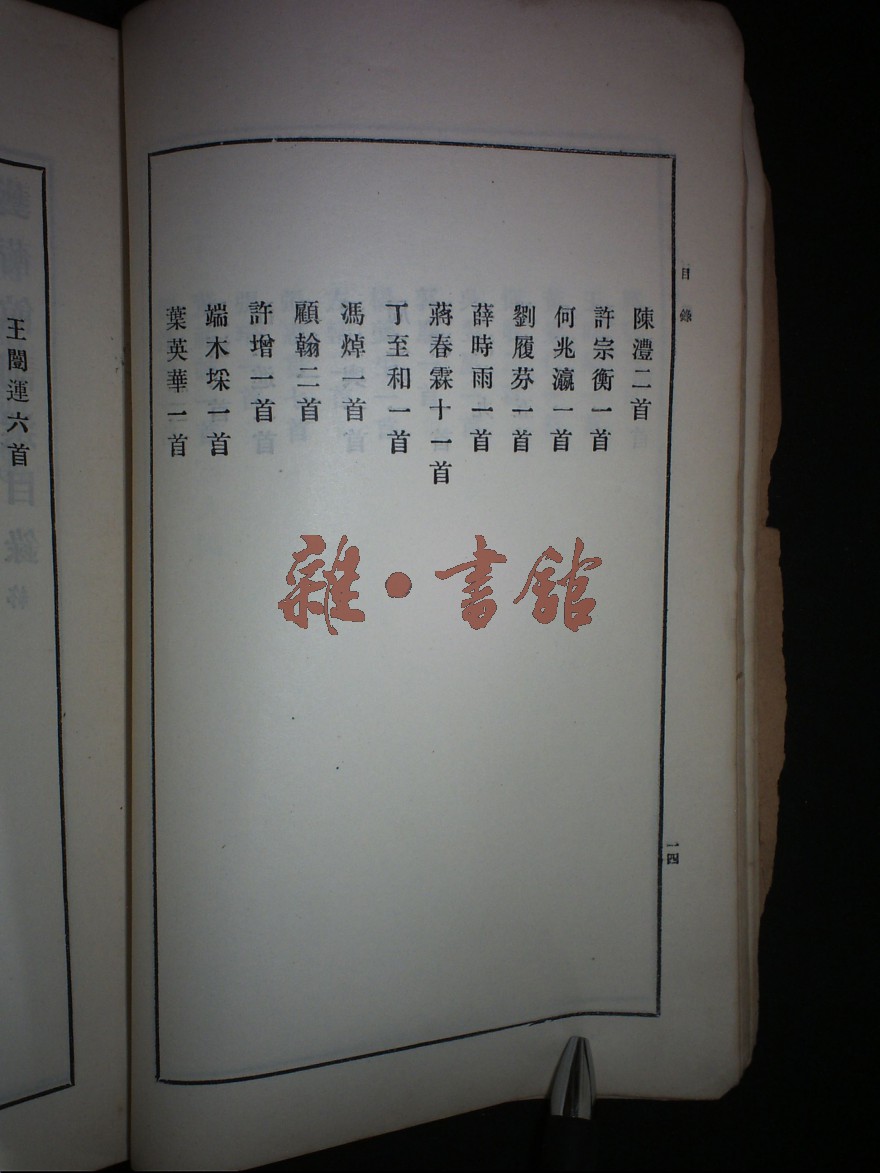 目錄
陳澧二首
許宗衡一首
何兆瀛一首
劉履芬一首
薛時雨一首
蔣春霖十一首
丁至和一首
馮焯一首
顧翰二首
許增一首
端木埰一首
葉英華一首
一四
王闓運六首
雜·書館